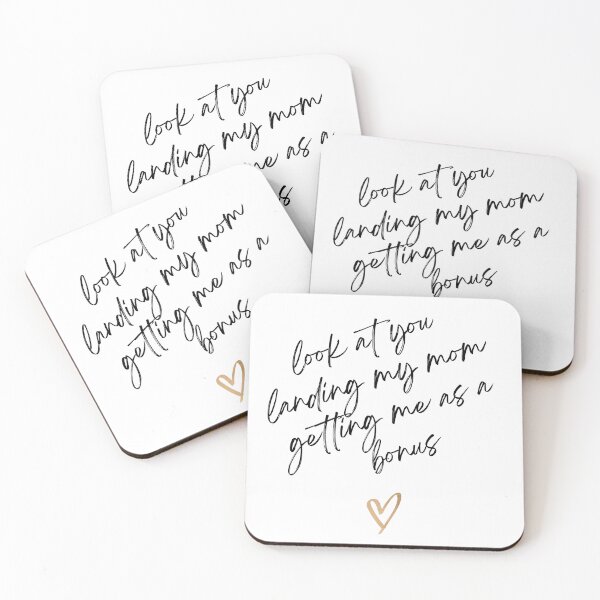 look at you
landing my mom
me as a
look at you
landing my mom
getting me as a
bonus
look at you
landing my mom
getting me as a
bonus
look at you
landing my mom
getting me as a
bonus